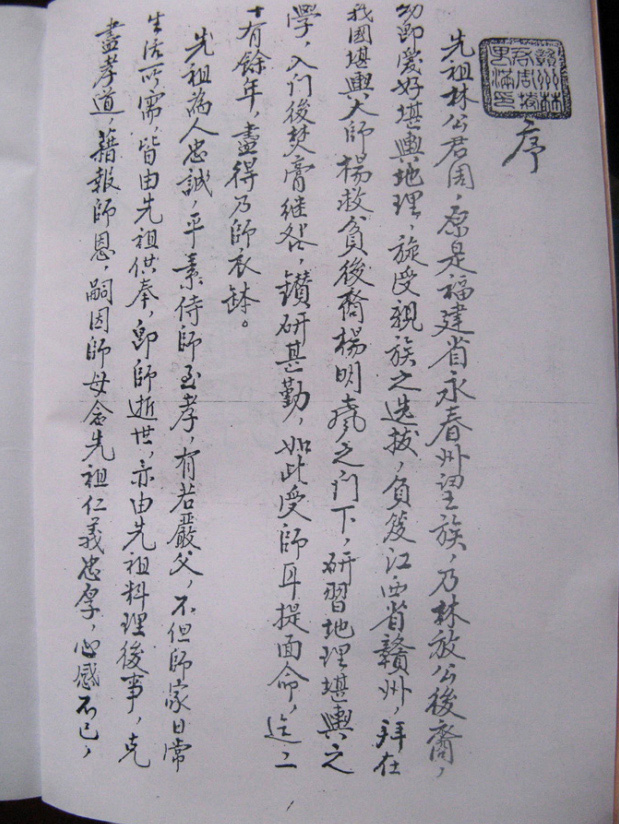 序
先祖林公君周，原是福建省永春州望族，乃林放公後裔，
幼即愛好堪輿地理，旋受親族之选拔，負笈江西省贛州，拜在
我國堪輿大師楊救貧後裔楊明之门下，研習地理堪輿之
學，入门後焚膏继晷，鑽研甚勤，如此受師耳提面命，迄二
十有餘年，盡得乃師衣缽。
先祖為人忠誠，平素侍師至孝，有若嚴父，不但師家日常
生活所需，皆由先祖供奉，即師逝世，亦由先祖料理後事，克
盡孝道，藉報師恩，嗣因師母念先祖仁義忠厚，心感不已，
1